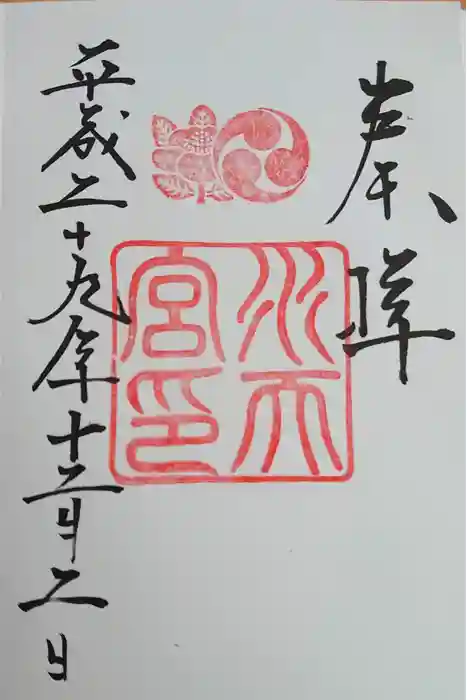 奉拝
水天
宮印
平成二十九年十二月二日